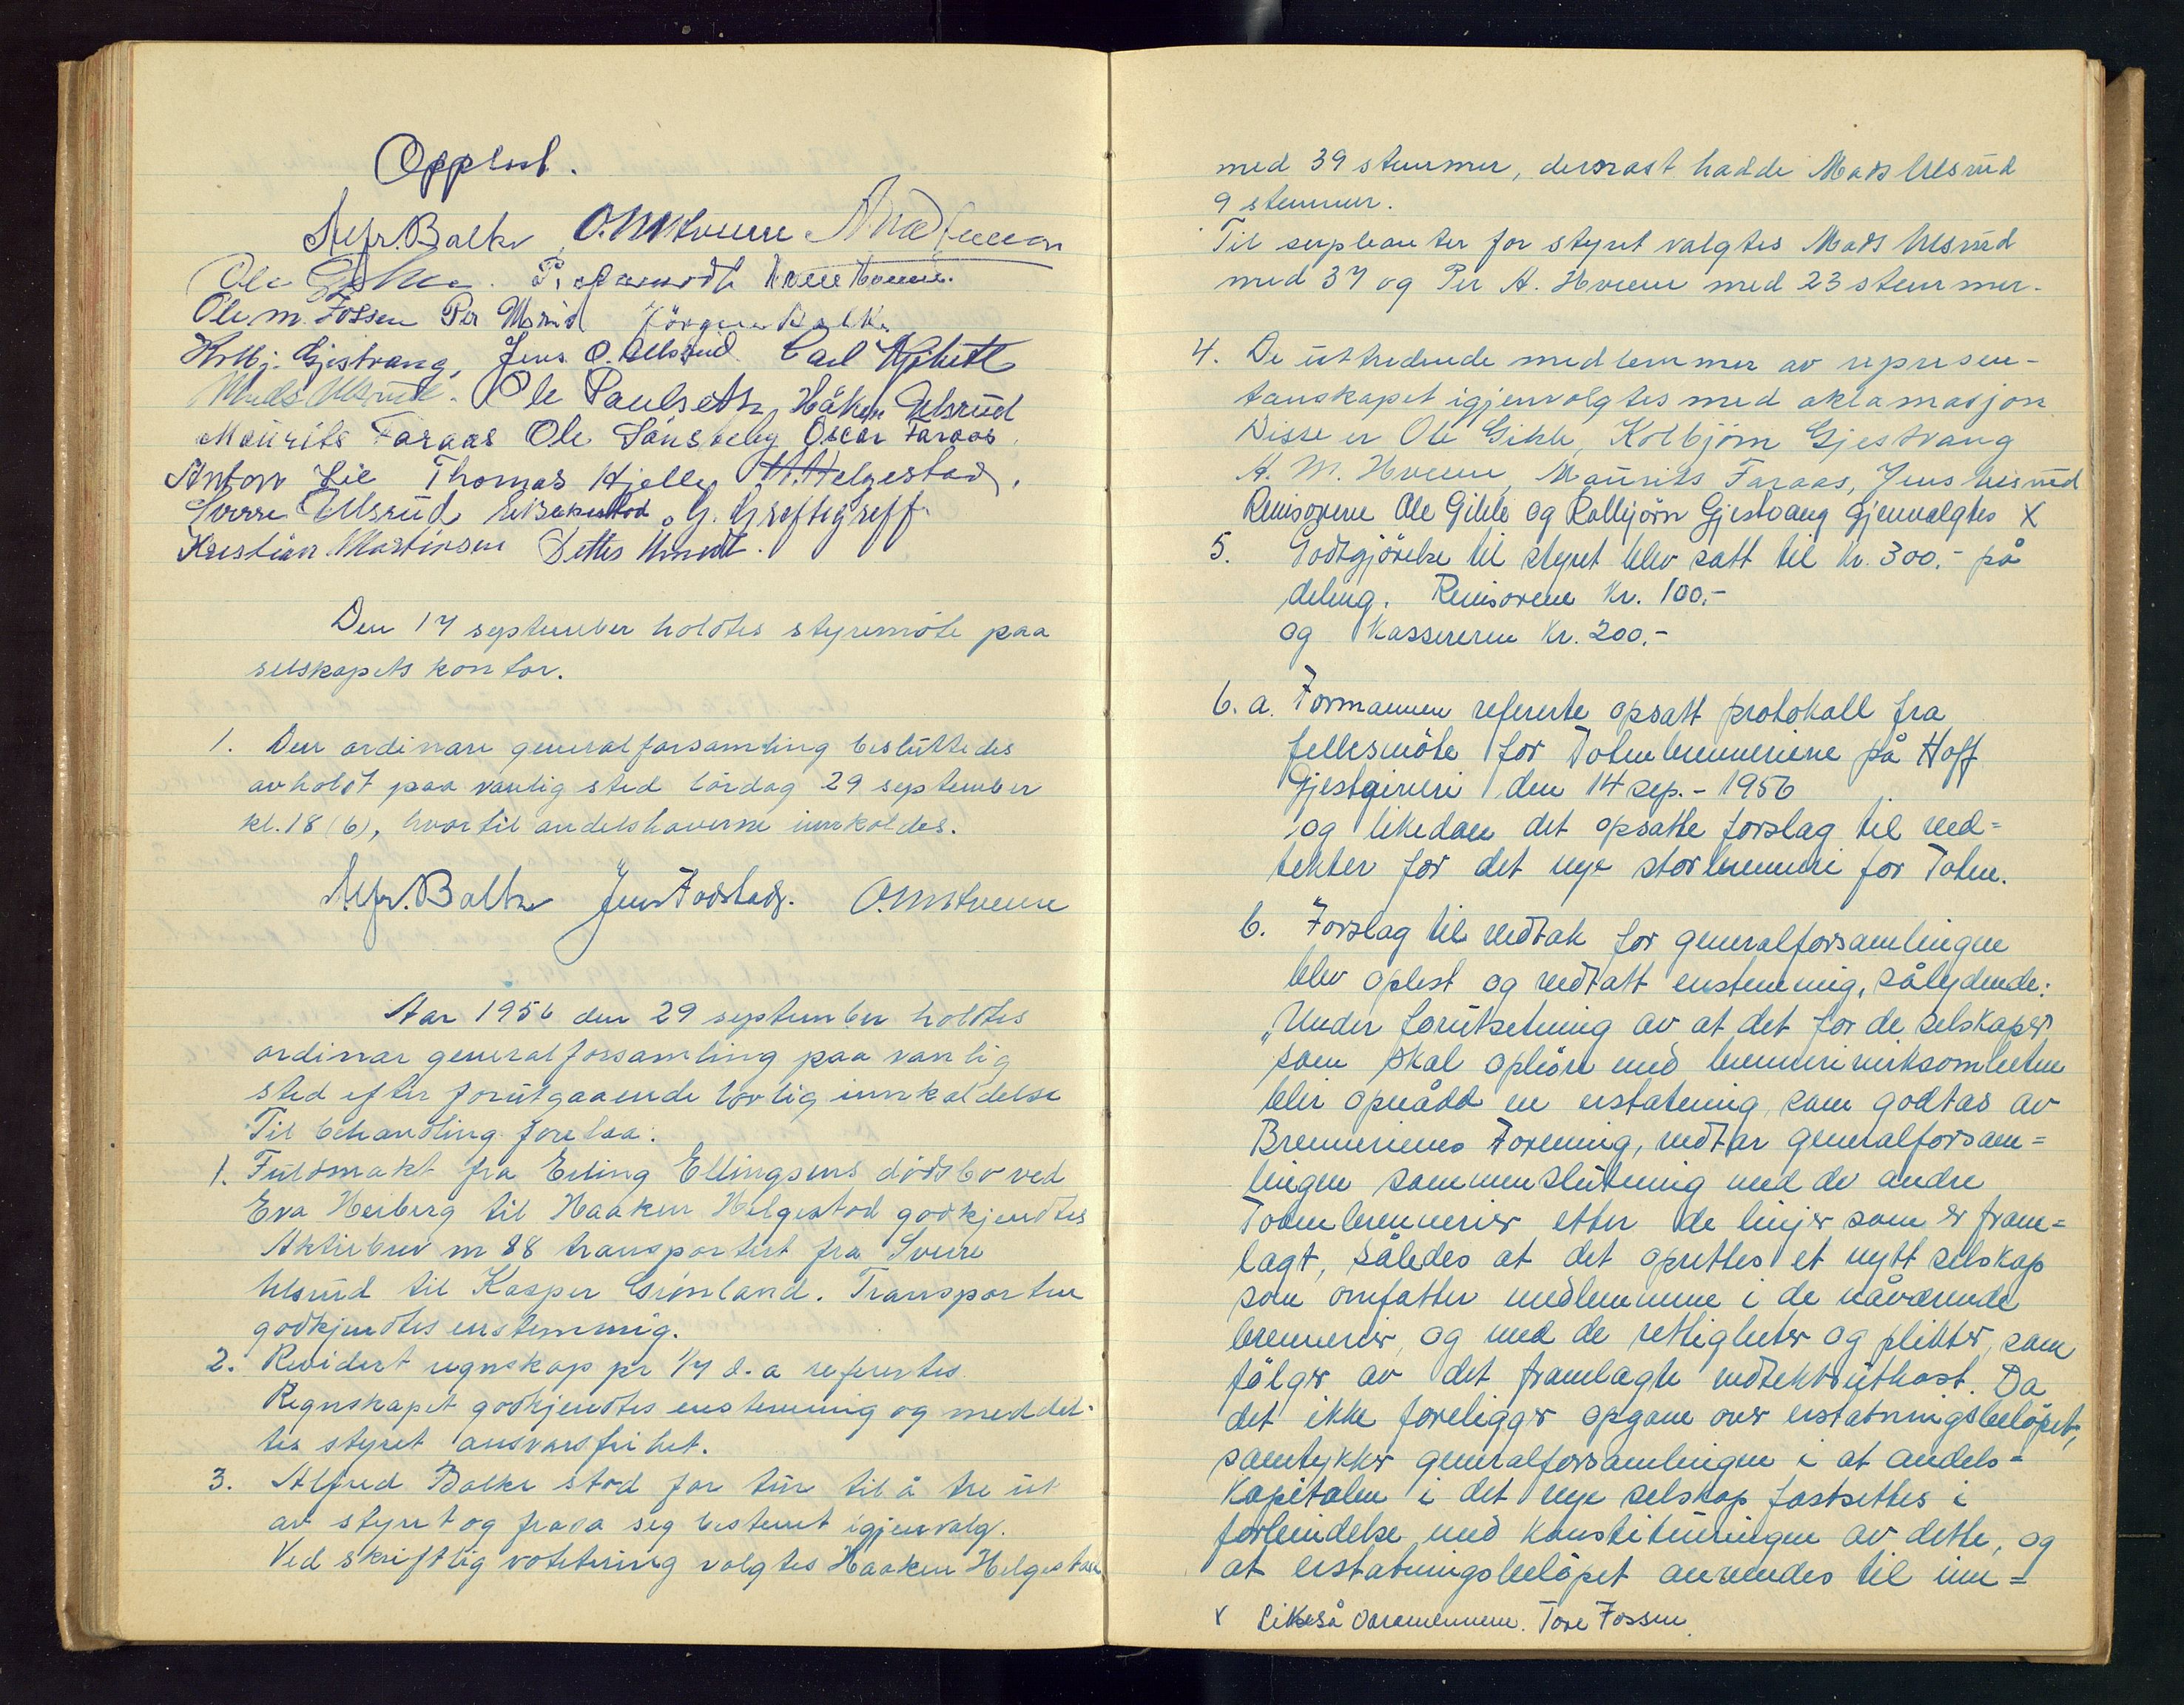 Opplest.
Alfr. Balke O.M. Hveem
Ole Gihle. Hveem.
Ole M. Fossen Per Ulsrud Jörgen Balke
Kolbj. Gjestvang, Jens O. Ullsrud. Carl
Mads Ulsrud. Ole Paulseth, Håken Ulsrud
Maurits Faraas Ole Sönsteby Oscar Faraas.
Anton Lie Thomas Hjelle H. Helgestad.
Sverre Ullsrud G. Greftegreff.
Kristian Martinsen
Den 17 september holdtes styremöte paa
selskapets kontor.
1. Den ordinære generalforsamling besluttedes
avholdt paa vanlig sted lördag 29 september
kl. 18 (6), hvortil andelshaverne innkaldes.
Alfr. Balke Jens Fodstad. O.M. Hveem
Aar 1956 den 29 september holdtes
ordinær generalforsamling paa vanlig
sted efter forutgaaende lovlig innkaldelse
Til behandling forelaa:
1. Fuldmakt fra Erling Ellingsens dödsbo ved
Eva Heiberg til Haaken Helgestad godkjendtes
Aktiebrev nr 88 transportert fra Sverre
Ulsrud til Kasper Grönland. Transporten
godkjendtes enstemmig.
2. Revidert regnskap pr 1/7 d. a refertes.
Regnskapet godkjendtes enstemmig og meddel-
tes styret ansvarsfrihet.
3. Alfred Balke stod for tur til å tre ut
av styret og frasa seg bestemt igjenvalg.
Ved skriftlig votetering valgtes Haaken Helgestad
med 39 stemmer, dernæst hadde Mads Ulsrud
9 stemmer.
Til supleanter for styret valgtes Mads Ulsrud
med 37 og Per A. Hveem med 23 stemmer.
4. De uttredende medlemmer av represen-
tanskapet igjenvalgtes med aklamasjon
Disse er Ole Gihle, Kolbjörn Gjestvang
A. M. Hveem, Maurits Faraas, Jens Ulsrud
Revisorene Ole Gihle og Kolbjörn Gjestvang gjenvalgtes X
5. Godtgjörelse til styret blev satt til kr. 300.- på
deling. Revisorene kr. 100.-
og kassereren kr. 200.-
6. a. Formannen refererte opsatt protokoll fra
fellesmöte for Totenbrenneriene på Hoff
Gjestgiveri den 14 sep. - 1956
og likedan det opsatte forslag til ved=
tekter for det nye storbrenneri for Toten.
b. Forslag til vedtak for generalforsamlingen
blev oplest og vedtatt enstemmig, sålydende:
„Under forutsetning av at det for de selskaper
som skal ophöre med brennerivirksomheten
blir opnådd en erstatning som godtas av
Brennerienes Forening, vedtar generalforsam=
lingen sammenslutning med de andre
Totenbrennerier etter de linjer som er fram=
lagt, således at det oprettes et nytt selskap
som omfatter medlemmene i de nåværende
brennerier, og med de rettigheter og plikter, som
fölger av det framlagte vedtektsutkast. Da
det ikke foreligger opgave over erstatningsbelöpet,
samtykker generalforsamlingen i at andels=
kapitalen i det nye selskap fastsettes i
forbindelse med konstitueringen av dette, og
at erstatningsbelöpet anvendes til inn=
x Likeså varamennene. Tore Fossen.